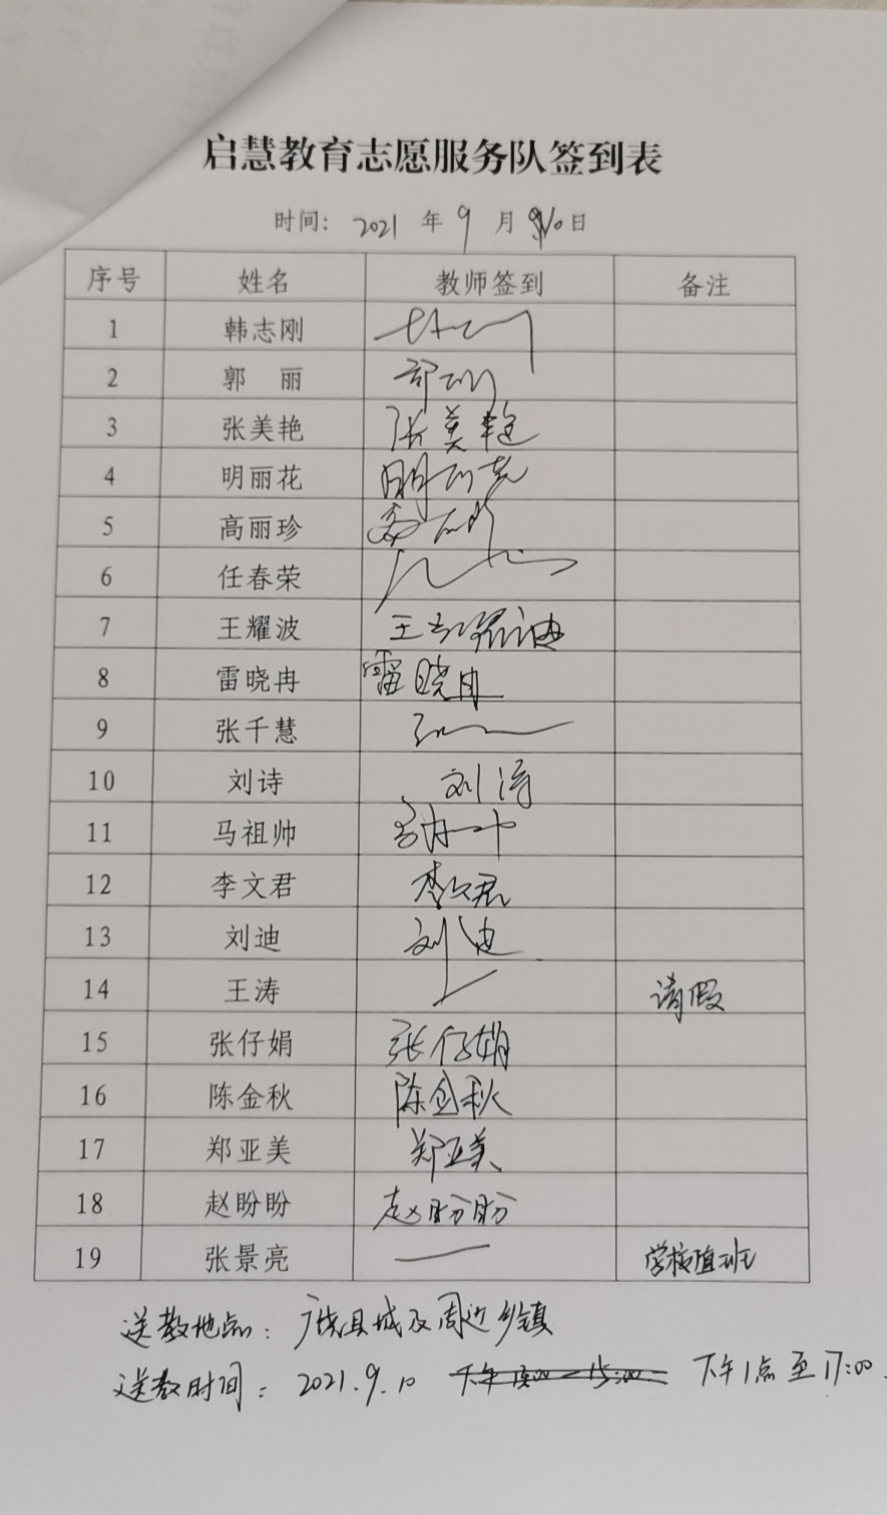 启慧教育志愿服务队签到表
时间: 2021 年 9 月 10日
序号 姓名 教师签到 备注
1 韩志刚
2 郭 丽 郭丽
3 张美艳 张美艳
4 明丽花 明丽花
5 高丽珍 高丽珍
6 任春荣
7 王耀波 王耀波
8 雷晓冉 雷晓冉
9 张千慧
10 刘诗 刘诗
11 马祖帅
12 李文君 李文君
13 刘迪 刘迪
14 王涛 请假
15 张仔娟 张仔娟
16 陈金秋 陈金秋
17 郑亚美 郑亚美
18 赵盼盼 赵盼盼
19 张景亮 — 学校值班
送教地点: 广饶县城及周边乡镇
送教时间: 2021.9.10 下午1点至17:00